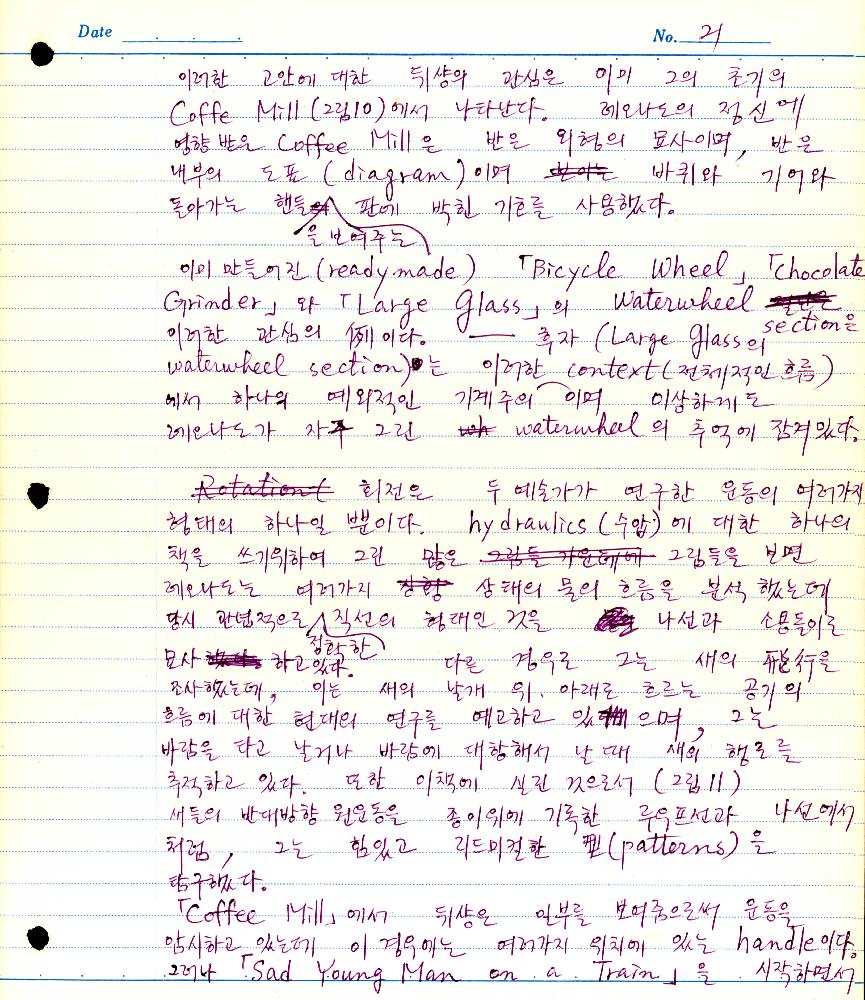 Date
No. 21
이러한 고안에 대한 뒤샹의 관심은 이미 그의 초기의
Coffe Mill (그림10)에서 나타난다. 레오나도의 정신에
영향 받은 Coffee Mill은 반은 외형의 묘사이며, 반은
내부의 도표 (diagram)이며 바퀴와 기어와
돌아가는 핸들 판에 박힌 기호를 사용했다.
을 보여주는
이미 만들어진 (readymade) 「Bicycle Wheel」 「Chocolate
Grinder」 와 「Large Glass」의 Waterwheel
section은
이러한 관심의 例이다. — 후자 (Large Glass의
waterwheel section)는 이러한 context (전체적인 흐름)
에서 하나의 예외적인 기계주의이며 이상하게도
레오나도가 자주 그린 waterwheel의 추억에 잠겨있다.
Rotation( 회전은 두 예술가가 연구한 운동의 여러가지
형태의 하나일 뿐이다. hydraulics (수압)에 대한 하나의
책을 쓰기위하여 그린 많은 그림들 가운데에 그림들을 보면
레오나도는 여러가지 상태의 물의 흐름을 분석했는데
당시 관념적으로 직선의 형태인 것을 나선과 소용돌이로
정확한
묘사 하고있다. 다른 경우로 그는 새의 飛行을
조사했는데, 이는 새의 날개 위.아래로 흐르는 공기의
흐름에 대한 현대의 연구를 예고하고 있으며, 그는
바람을 타고 날거나 바람에 대항해서 날 때 새의 행로를
추적하고 있다. 또한 이책에 실린 것으로서 (그림11)
새들의 반대방향 원운동을 종이위에 기록한 루우프선과 나선에서
처럼, 그는 힘있고 리드미컬한 型(patterns)을
탐구했다.
「Coffee Mill」에서 뒤샹은 일부를 보여줌으로써 운동을
암시하고 있는데 이 경우에는 여러가지 위치에 있는 handle이다.
그러나 「Sad Young Man on a Train」을 시작하면서